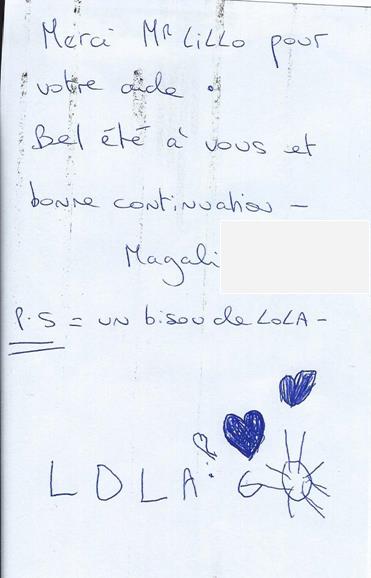 Merci Mr LiLLo pour
votre aide.
Bel été à vous et
bonne continuation -
Magali
P.S = un bisou de LOLA -
LOLA